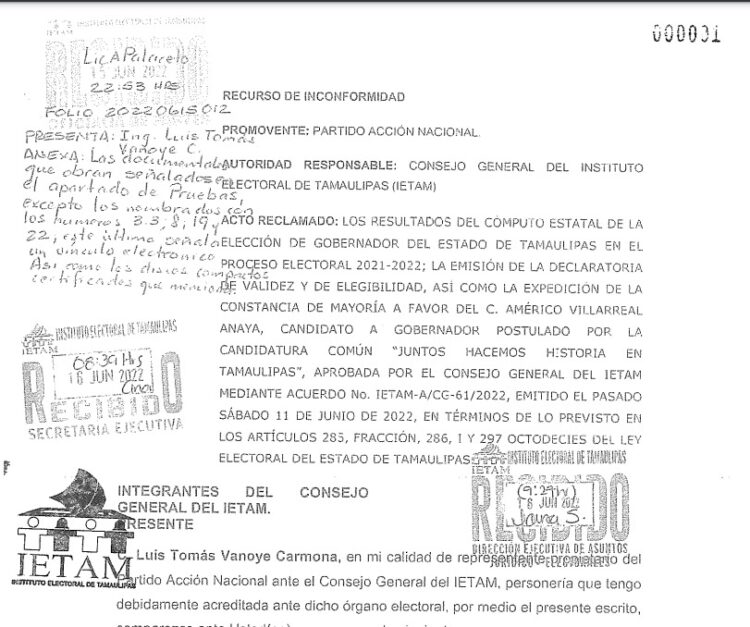 000001
INSTITUTO ELECTORAL DE TAMAULIPAS
IETAM
RECIBIDO
Lic A Palacio
15 JUN 2022
22:53 HRS
FOLIO 20220615012
PRESENTA: Ing. Luis Tomás
Vanoye C.
ANEXA: Las documentales
que obran señalados en
el apartado de Pruebas,
excepto los nombrados con
los numeros 3.3, 8, 19 y
22, este último señala
un vinculo electronico
Así como los discos compactos
certificados que menciona.
RECURSO DE INCONFORMIDAD
PROMOVENTE: PARTIDO ACCIÓN NACIONAL.
AUTORIDAD RESPONSABLE: CONSEJO GENERAL DEL INSTITUTO
ELECTORAL DE TAMAULIPAS (IETAM)
ACTO RECLAMADO: LOS RESULTADOS DEL CÓMPUTO ESTATAL DE LA
ELECCIÓN DE GOBERNADOR DEL ESTADO DE TAMAULIPAS EN EL
PROCESO ELECTORAL 2021-2022; LA EMISIÓN DE LA DECLARATORIA
DE VALIDEZ Y DE ELEGIBILIDAD, ASÍ COMO LA EXPEDICIÓN DE LA
CONSTANCIA DE MAYORÍA A FAVOR DEL C. AMÉRICO VILLARREAL
ANAYA, CANDIDATO A GOBERNADOR POSTULADO POR LA
CANDIDATURA COMÚN "JUNTOS HACEMOS HISTORIA EN
TAMAULIPAS", APROBADA POR EL CONSEJO GENERAL DEL IETAM
MEDIANTE ACUERDO No. IETAM-A/CG-61/2022, EMITIDO EL PASADO
SÁBADO 11 DE JUNIO DE 2022, EN TÉRMINOS DE LO PREVISTO EN
LOS ARTÍCULOS 283, FRACCIÓN, 286, I Y 297 OCTODECIES DEL LEY
ELECTORAL DEL ESTADO DE TAMAULIPAS
INSTITUTO ELECTORAL DE TAMAULIPAS
IETAM
08:39 Hrs
16 JUN 2022
RECIBIDO
SECRETARIA EJECUTIVA
INSTITUTO ELECTORAL DE TAMAULIPAS
IETAM
(9:29 hr)
16 JUN 2022
Juana S.
RECIBIDO
DIRECCIÓN EJECUTIVA DE ASUNTOS
JURÍDICO - ELECTORALES
INTEGRANTES DEL CONSEJO
GENERAL DEL IETAM.
PRESENTE
IETAM
INSTITUTO ELECTORAL DE TAMAULIPAS
Luis Tomás Vanoye Carmona, en mi calidad de representante propietario del
Partido Acción Nacional ante el Consejo General del IETAM, personería que tengo
debidamente acreditada ante dicho órgano electoral, por medio el presente escrito,